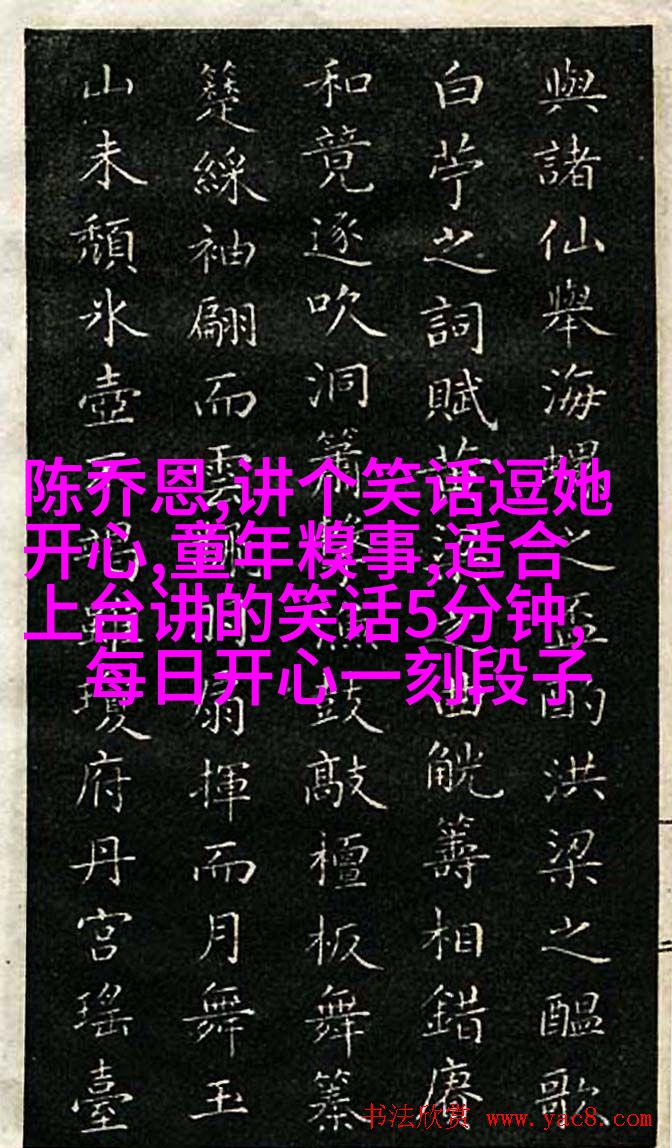 與諸仙舉海之盃酌洪梁之醞歌
白苧之詞賦曲觥籌相錯賡
和竟逐吹洞簫鼓敲檀板舞
綵袖翩而雲扇揮而月舞玉
山未頹氷壺竭瓊府丹宮瑤臺
陈乔恩,讲个笑话逗她
开心,童年糗事,适合
上台讲的笑话5分钟,
每日开心一刻段子
书法欣赏 www.yac8.com